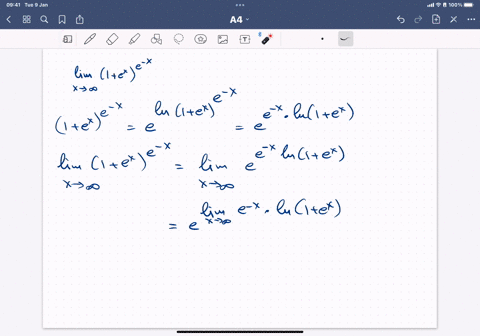 09:41 Tue 9 Jan
100%
A4
lim (1+eˣ)^e⁻ˣ
x→∞
(1+eˣ)^e⁻ˣ = e^ln(1+eˣ)^e⁻ˣ = e^e⁻ˣ·ln(1+eˣ)
lim (1+eˣ)^e⁻ˣ = lim e^e⁻ˣ ln(1+eˣ)
x→∞ x→∞
= e^lim e⁻ˣ · ln(1+eˣ)
x→∞